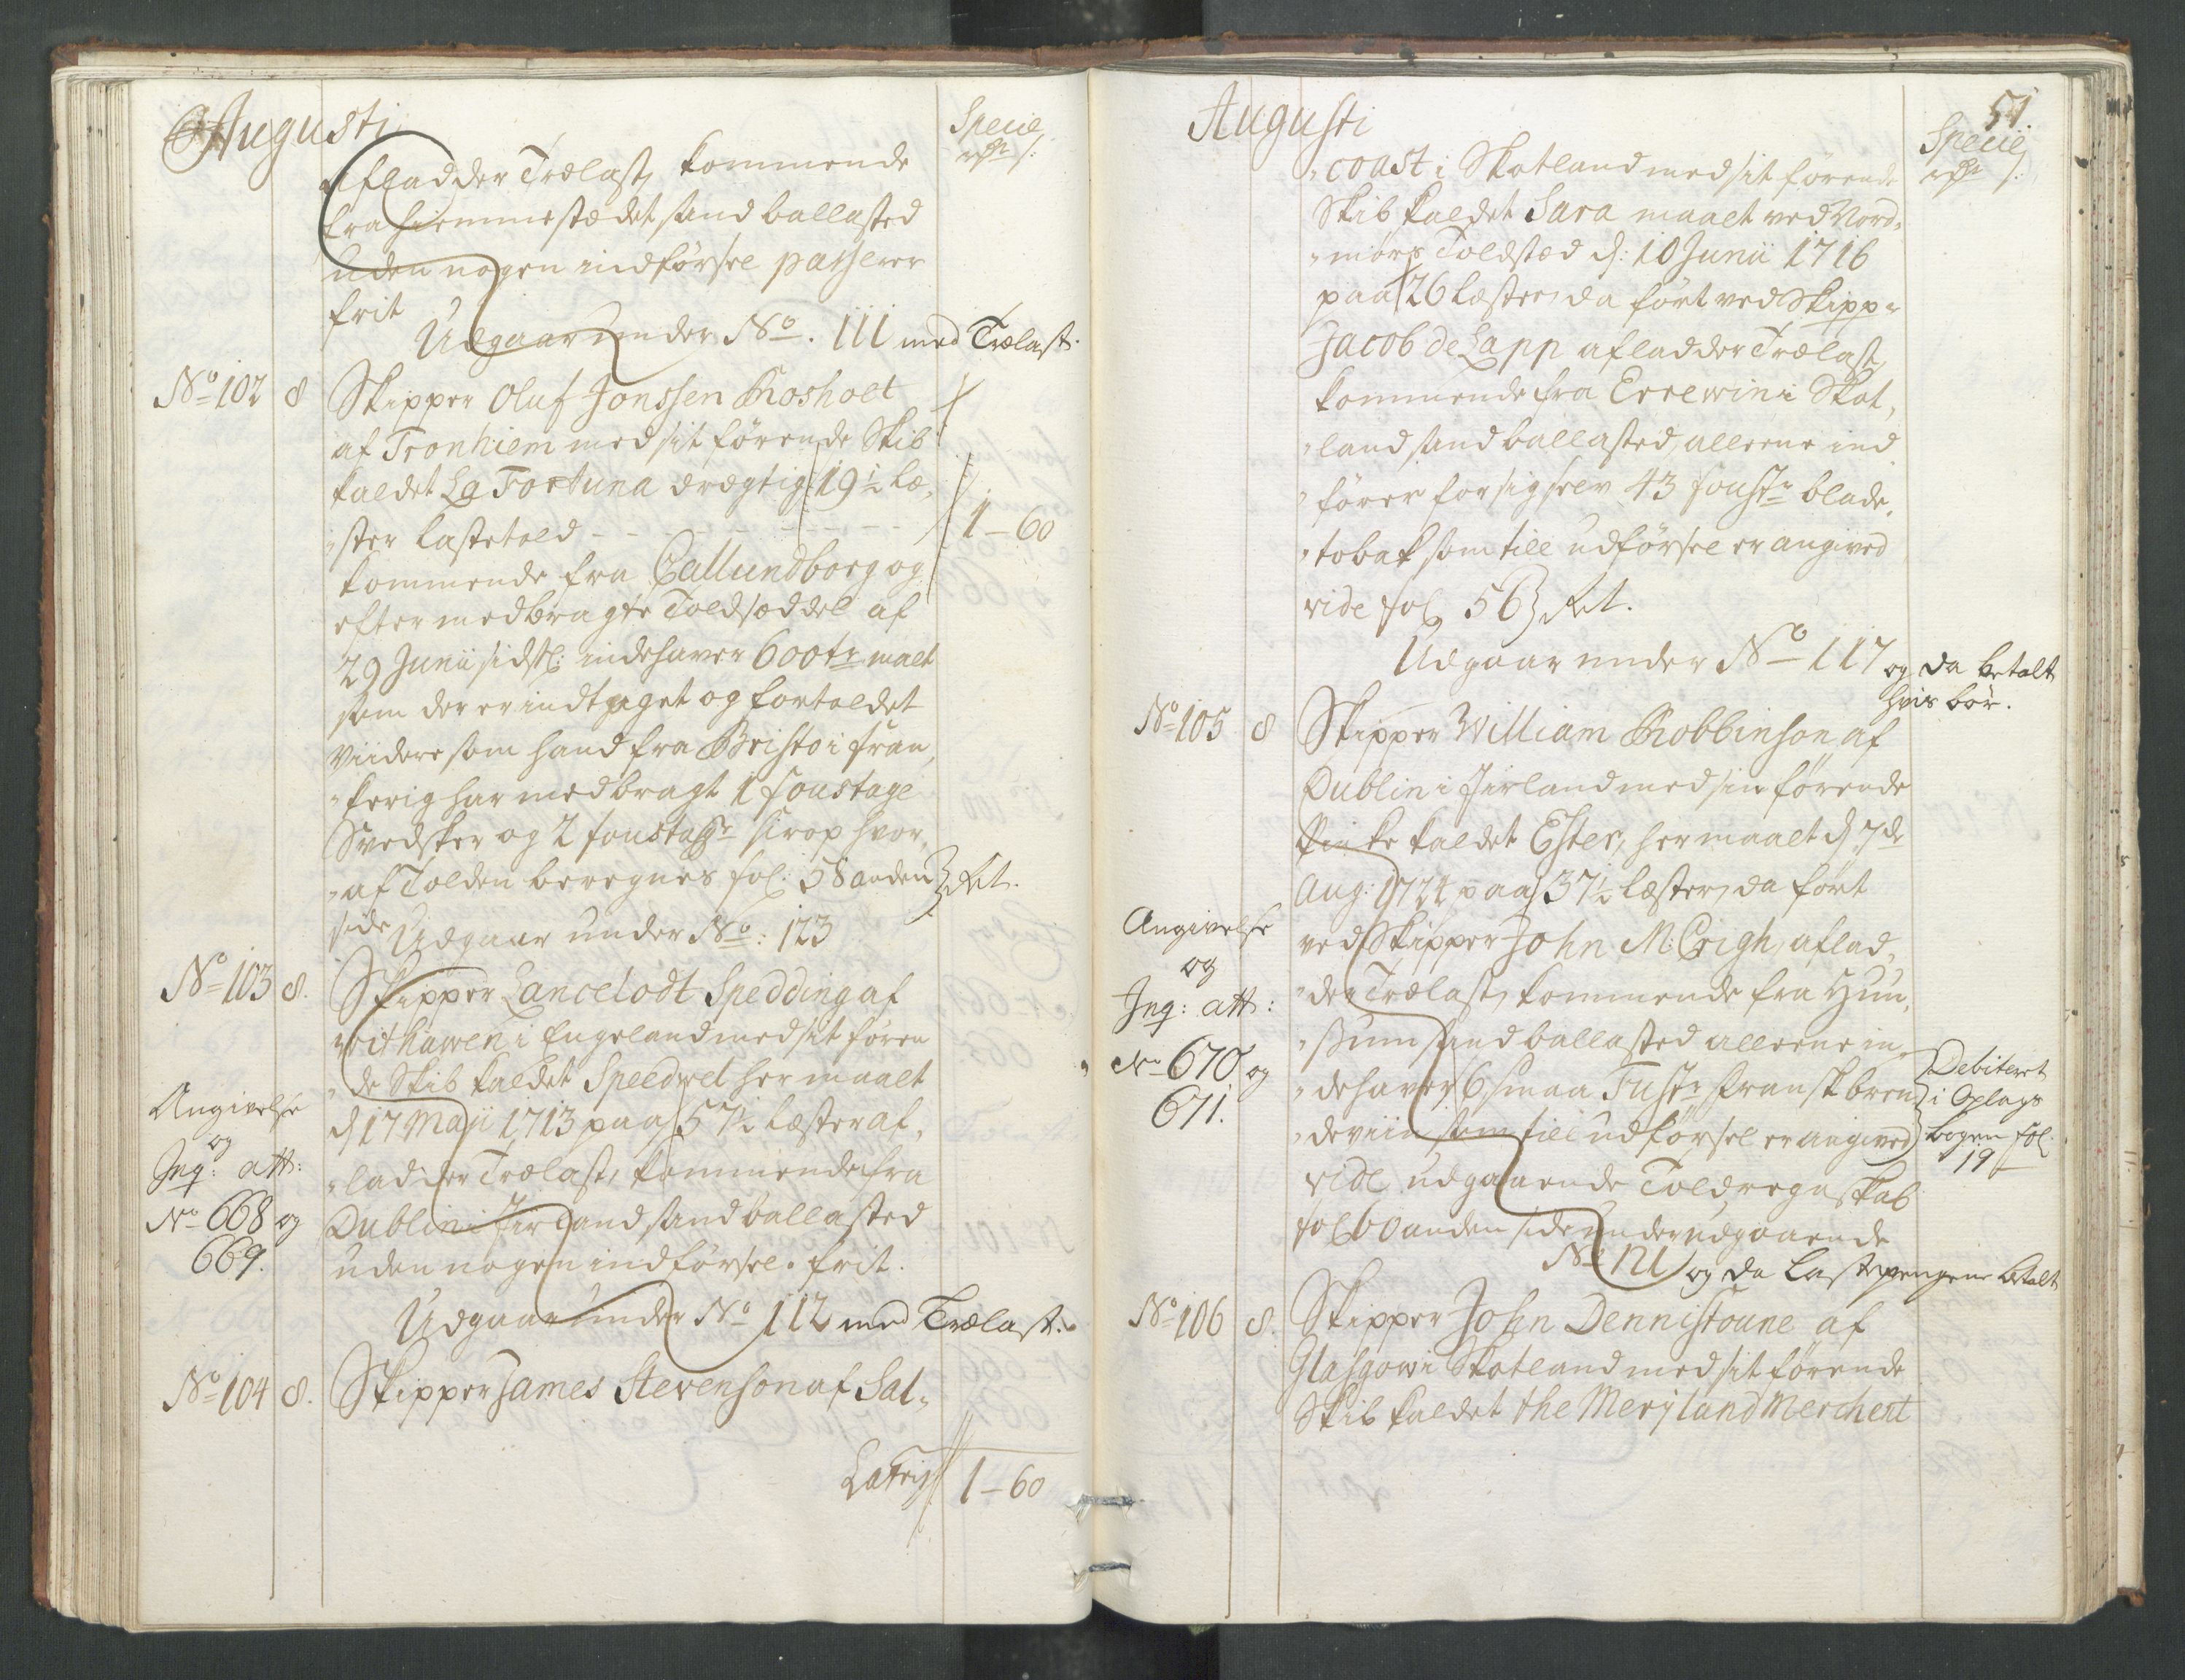 Augusti
Specie
rdr s:
Afladder Trælast, kommende
fra hiemmestædet sandballasted
uden nogen indførsel passerer
frit
Udgaar under No. 111 med Trælast.
No 102 8 Skipper Oluf Jonssen Rosholt
af Tronhiem med sit førende Skib
kaldet La Fortuna drægtig 19½ læ,
"ster Lastetold - - - - - 1 - 60
kommende fra Callundborg og
efter medbragte Toldsæddel af
29 Junii sidstl: indehaver 600 tr malt
som der er indtaget og fortoldet
Viidere som hand fra Bristo i fran,
"kerig har medbragt 1 foustage
Svedsker og 2 foustagr sirop hvor,
"af Tolden beregnes fol: 58 anden
side
Udgaar under No: 123
No 103 8. Skipper Lancelodt Spedding af
withawen i Engeland med sit føren
"de Skib kaldet Speedwel her maalt
d 17 Maji 1713 paa 57½ læster af,
"ladder Trælast, kommende fra
Dublin i Jirland sandballasted
uden nogen indførsel. frit.
Angivelse
og
Inq: att:
No 668 og
669.
Udgaar under No 112 med Trælast.
No 104 8. Skipper James Stevenson af Sal,
Lateris 1 - 60
Augusti
51.
Specie
rdr s:
"coast i Skotland med sit førende
Skib kaldet Sara maalt ved Nord,
"mørs Toldstæd d: 10 Junii 1716
paa 26 læster, da ført ved Skipp
Jacob de Lapp afladder Trælast
kommende fra Errewin i Skot,
"land sandballasted, alleene ind
"fører for sig selv 43 foustr blade,
"tobak som till udførsel er angived
vide fol 56
Udgaar under No 117 og da betalt
hvis bør.
No 105 8 Skipper William Robbinson af
Dublin i Jirland med sin førende
Pinke kaldet Ester, her maalt d 7de
Aug: 1724 paa 37½ læster, da ført
ved Skipper John M:Creigh, aflad,
"der Trælast, kommende fra Hun,
"sum sandballasted alleene in,
"dehaver 6 smaa Fustr fransk bren
"deviin som till udførsel er angived
vide udgaaende Toldregnskab
fol 60 anden side under udgaaende
No 121 og da Lastepengene betalt
Angivelse
og
Inq: att:
No 670 og
671.
Debiteret
i Oplags
bogen fol.
19
No 106 8. Skipper John Dennistoune af
Glasgow i Skotland med sit førende
Skib kaldet the Meryland Merchent